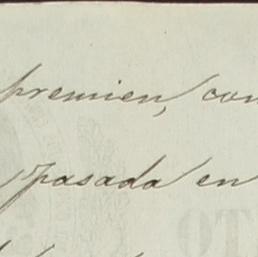 premien, con
pasada en